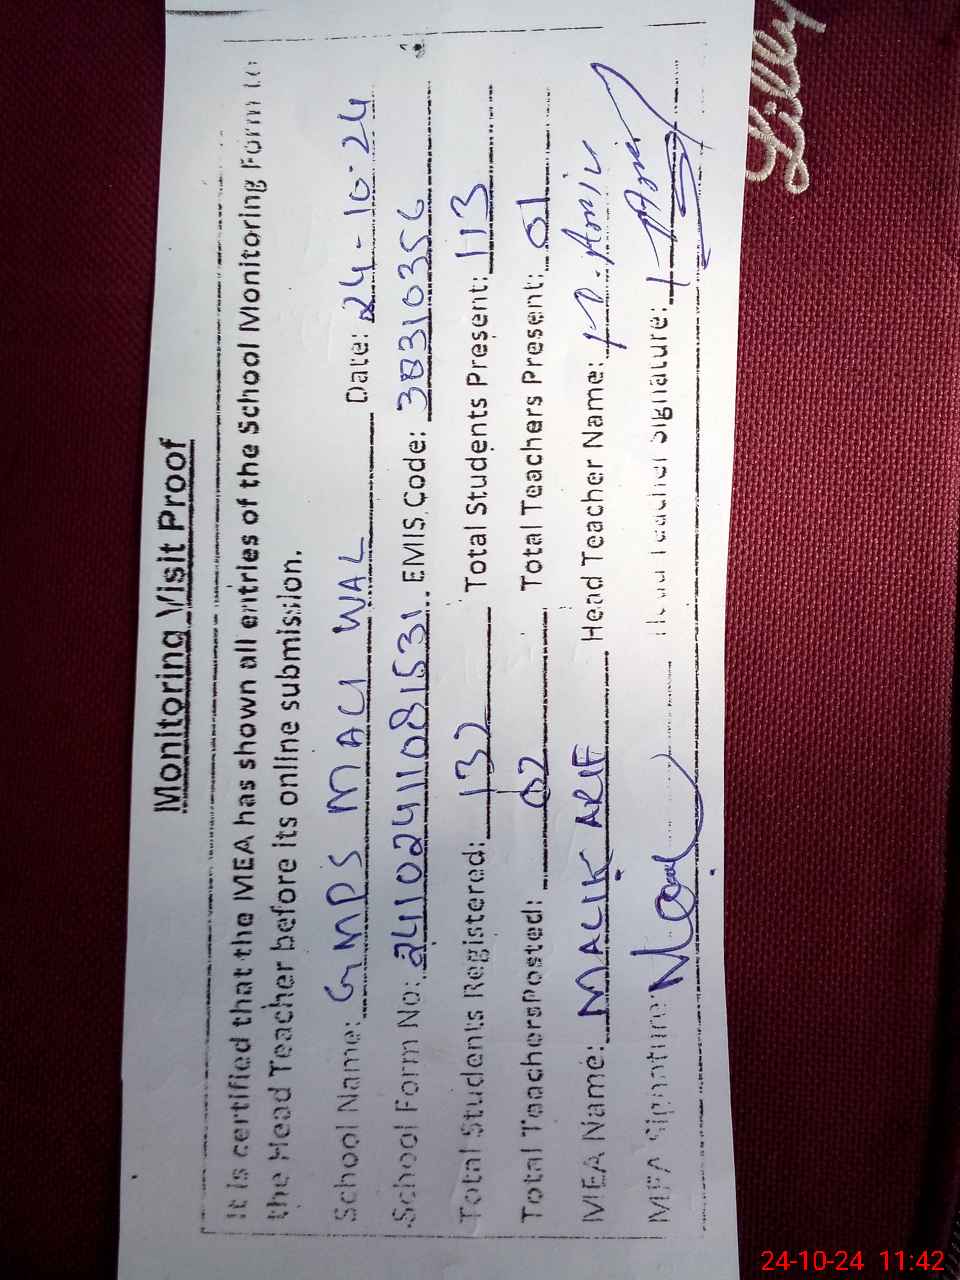 Monitoring Visit Proof
It is certified that the MEA has shown all entries of the School Monitoring Form to
the Head Teacher before its online submission.
School Name: GMPS MACI WAL Date: 24-10-24
School Form No: 24110241108 1531 EMIS Code: 38310356
Total Students Registered: 132 Total Students Present: 113
Total Teachers Posted: 02 Total Teachers Present: 01
MEA Name: MALIK ARIF Head Teacher Name: M. Amin
MEA Signature: Head Teacher Signature:
Lilly
24-10-24 11:42